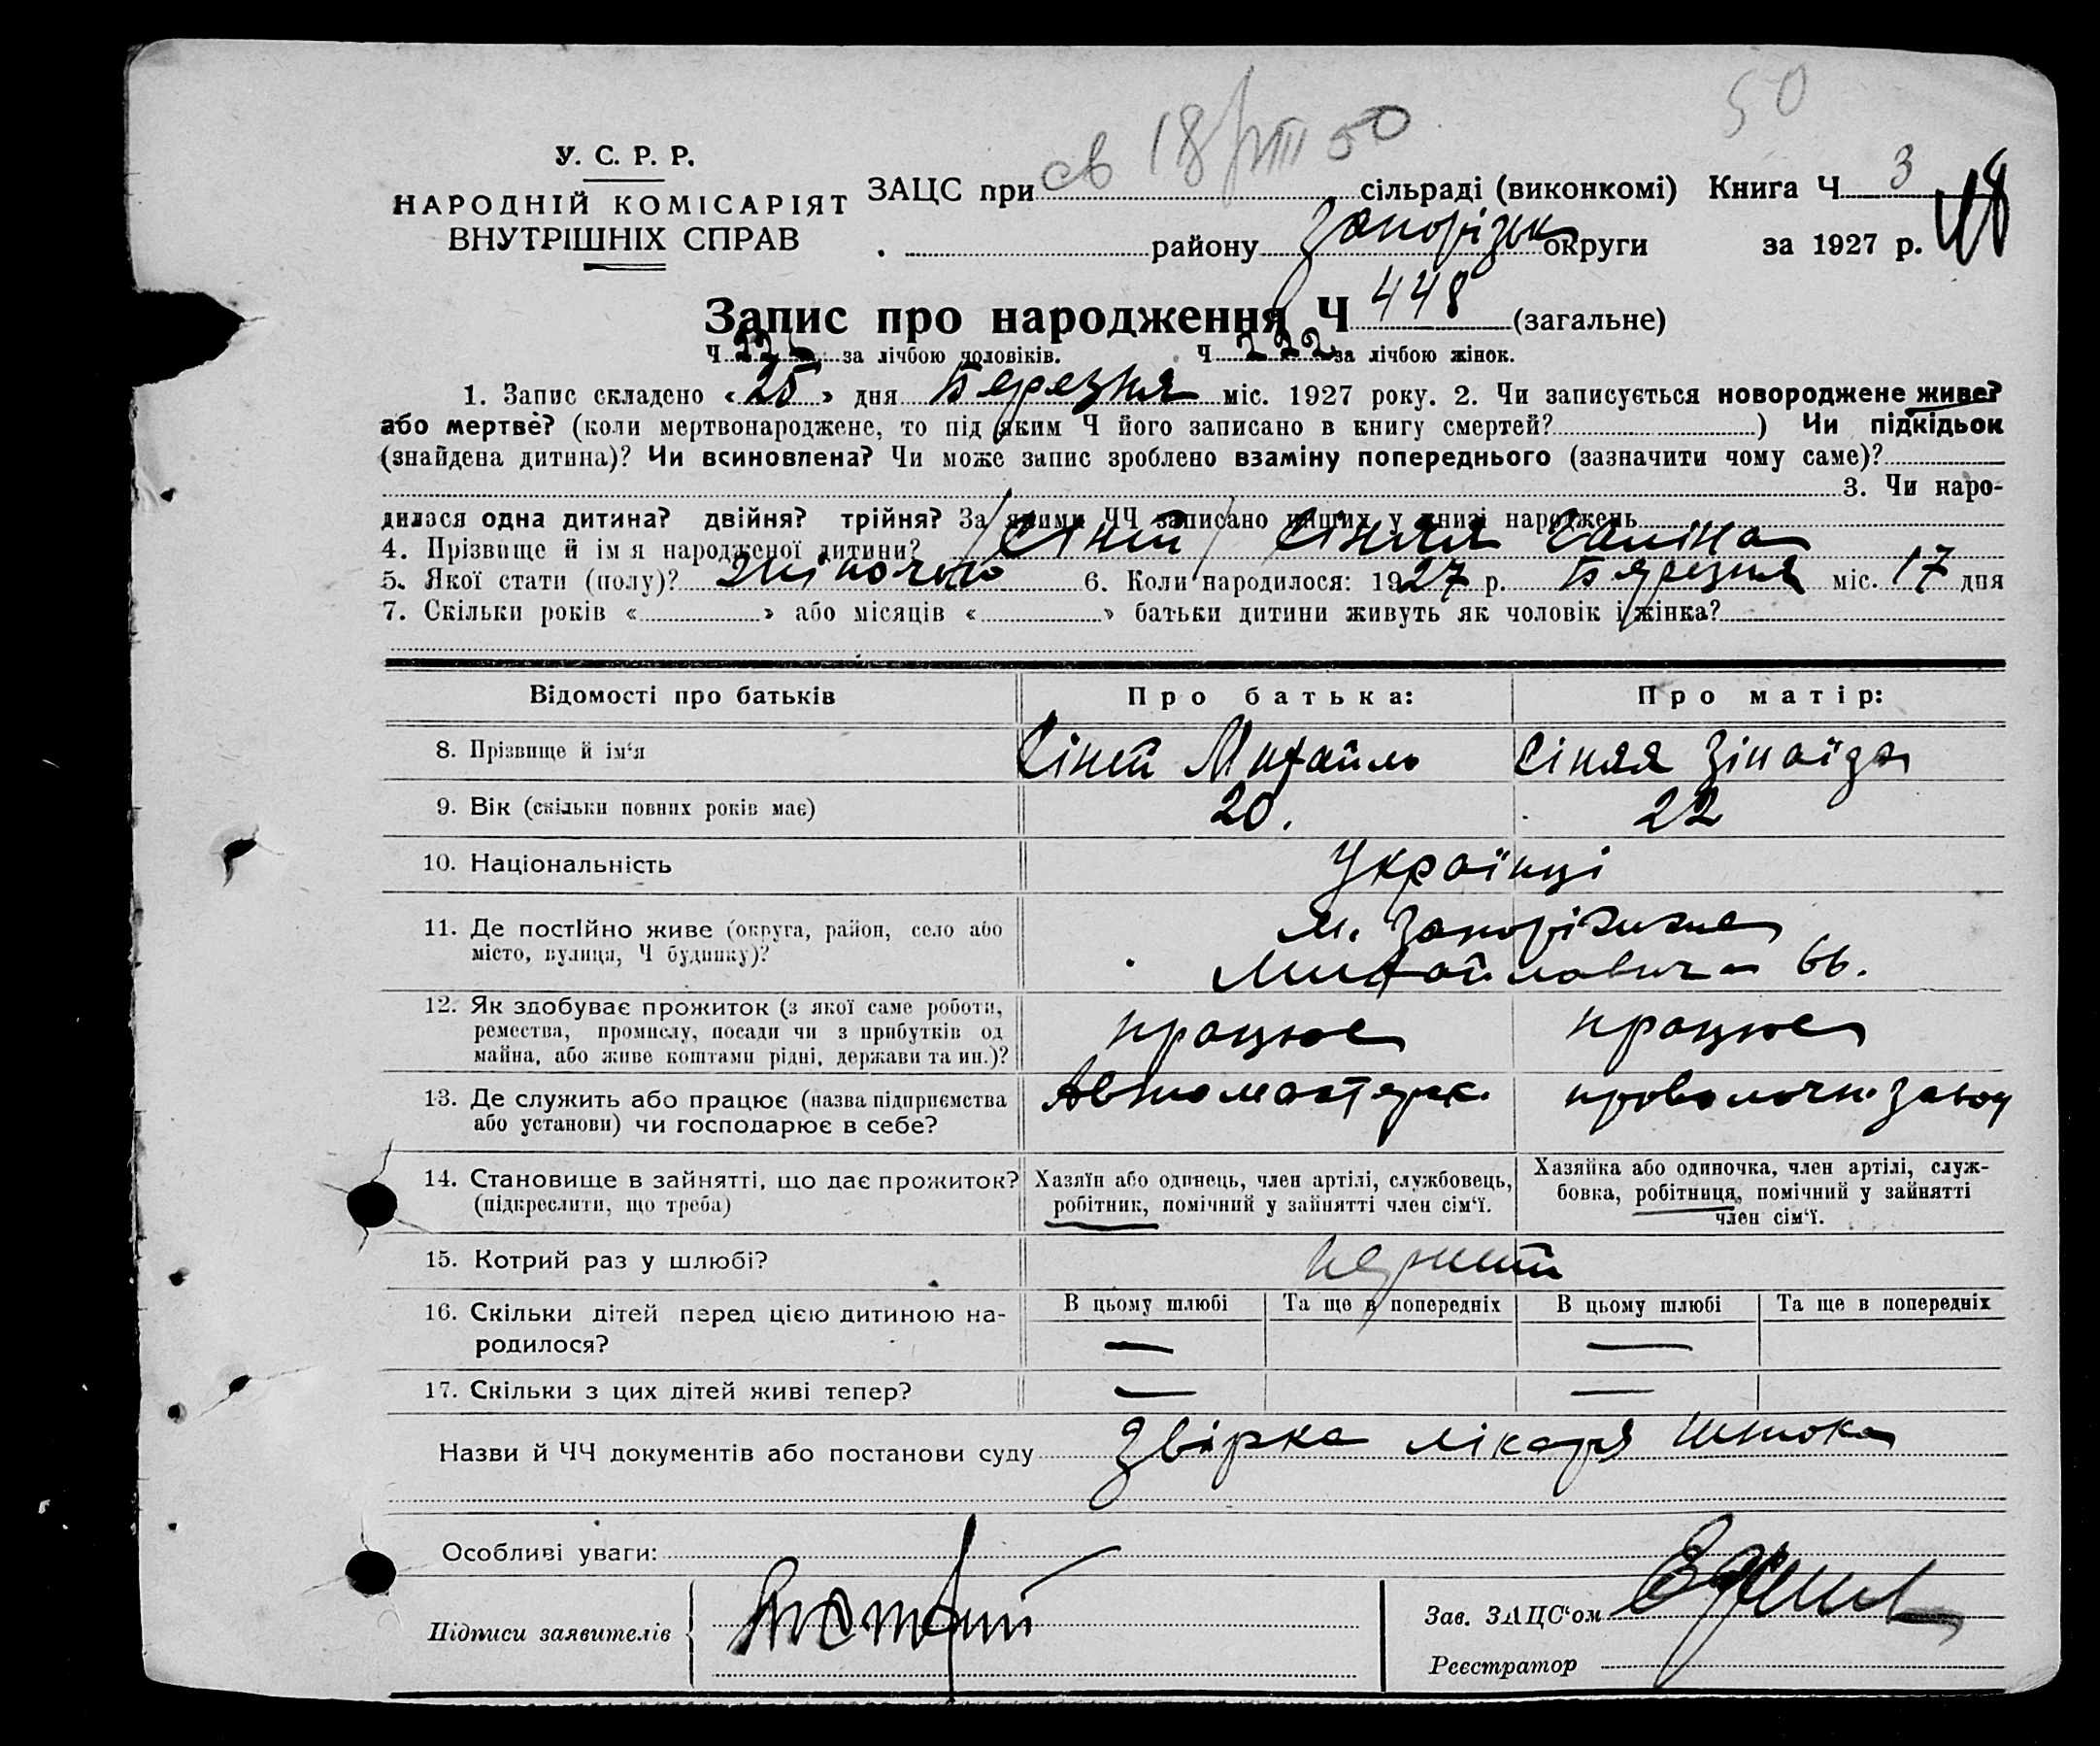 50
У. С. Р. Р.
НАРОДНІЙ КОМІСАРІЯТ
ВНУТРІШНІХ СПРАВ
св 18/VIII 50
ЗАЦС при сільраді (виконкомі) Книга Ч 3
району Запорізьк округи за 1927 р. 48
Запис про народження Ч 448 (загальне)
Ч за лічбою чоловіків. Ч 222 за лічбою жінок.
1. Запис складено « 25 » дня Березня міс. 1927 року. 2. Чи записується новороджене живе?
або мертве? (коли мертвонароджене, то під яким Ч його записано в книгу смертей? ) Чи підкідьок
(знайдена дитина)? Чи всиновлена? Чи може запис зроблено взаміну попереднього (зазначити чому саме)?
3. Чи наро-
дилася одна дитина? двійня? трійня? За якими ЧЧ записано инших у книзі народжень
4. Прізвище й ім я народженої дитини? /Сіний/ Сіняя Галіна
5. Якої стати (полу)? жіночого 6. Коли народилося: 1927 р. Березня міс. 17 дня
7. Скільки років « » або місяців « » батьки дитини живуть як чоловік і жінка?
Відомості про батьків Про батька: Про матір:
8. Прізвище й ім‘я Сіний Михайло Сіняя Зінаїда
9. Вік (скільки повних років має) 20. 22
10. Національність Українці
11. Де постійно живе (округа, район, село або
місто, вулиця, Ч будинку)?
м. Запоріжжя
Михайловича 66.
12. Як здобуває прожиток (з якої саме роботи,
ремества, промислу, посади чи з прибутків од
майна, або живе коштами рідні, держави та ин.)?
працює працює
13. Де служить або працює (назва підприємства
або установи) чи господарює в себе?
Автомастерск. проволочн. завод
14. Становище в зайнятті, що дає прожиток?
(підкреслити, що треба)
Хазяїн або одинець, член артілі, службовець,
робітник, помічний у зайнятті член сім‘ї.
Хазяйка або одиночка, член артілі, служ-
бовка, робітниця, помічний у зайнятті
член сім‘ї.
15. Котрий раз у шлюбі? перший
16. Скільки дітей перед цією дитиною на-
родилося?
В цьому шлюбі Та ще в попередніх В цьому шлюбі Та ще в попередніх
— —
17. Скільки з цих дітей живі тепер? — —
Назви й ЧЧ документів або постанови суду Звірка лікаря Штока
Особливі уваги:
Підписи заявителів
Зав. ЗАЦС‘ом
Реєстратор